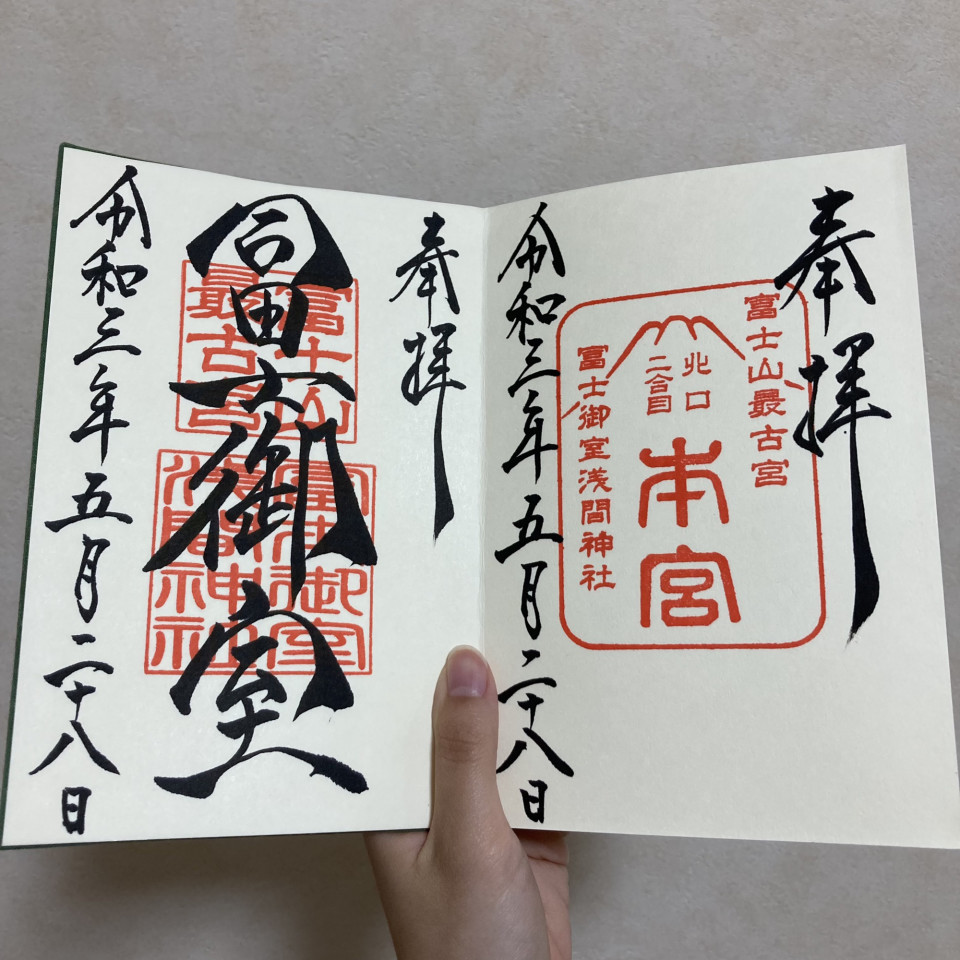 奉拝
富士山最古宮
北口
二合目
本宮
富士御室浅間神社
令和三年五月二十八日
奉拝
冨士御室
富士山
最古宮
冨士御室
浅間神社
令和三年五月二十八日